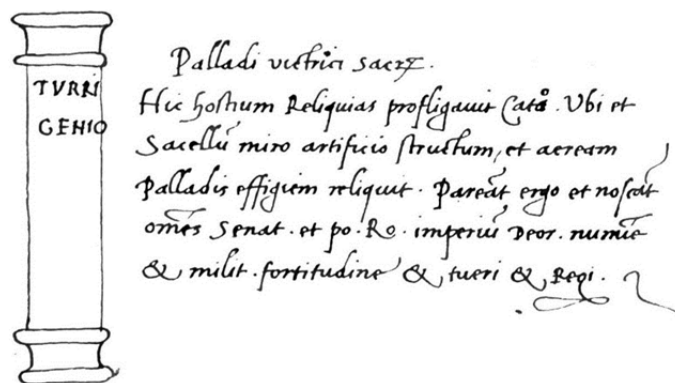 TVRRI
GENIO
Palladi victrici sacrꝝ.
Hic hostium Reliquias profligauit Cato. Vbi et
Sacellū miro artificio structum, et aeream
Palladis effigiem reliquit. Pareāt ergo et noscāt
omēs Senat. et po. Ro. imperiū Deor. numīe
& milit. fortitudine & tueri & Regi.